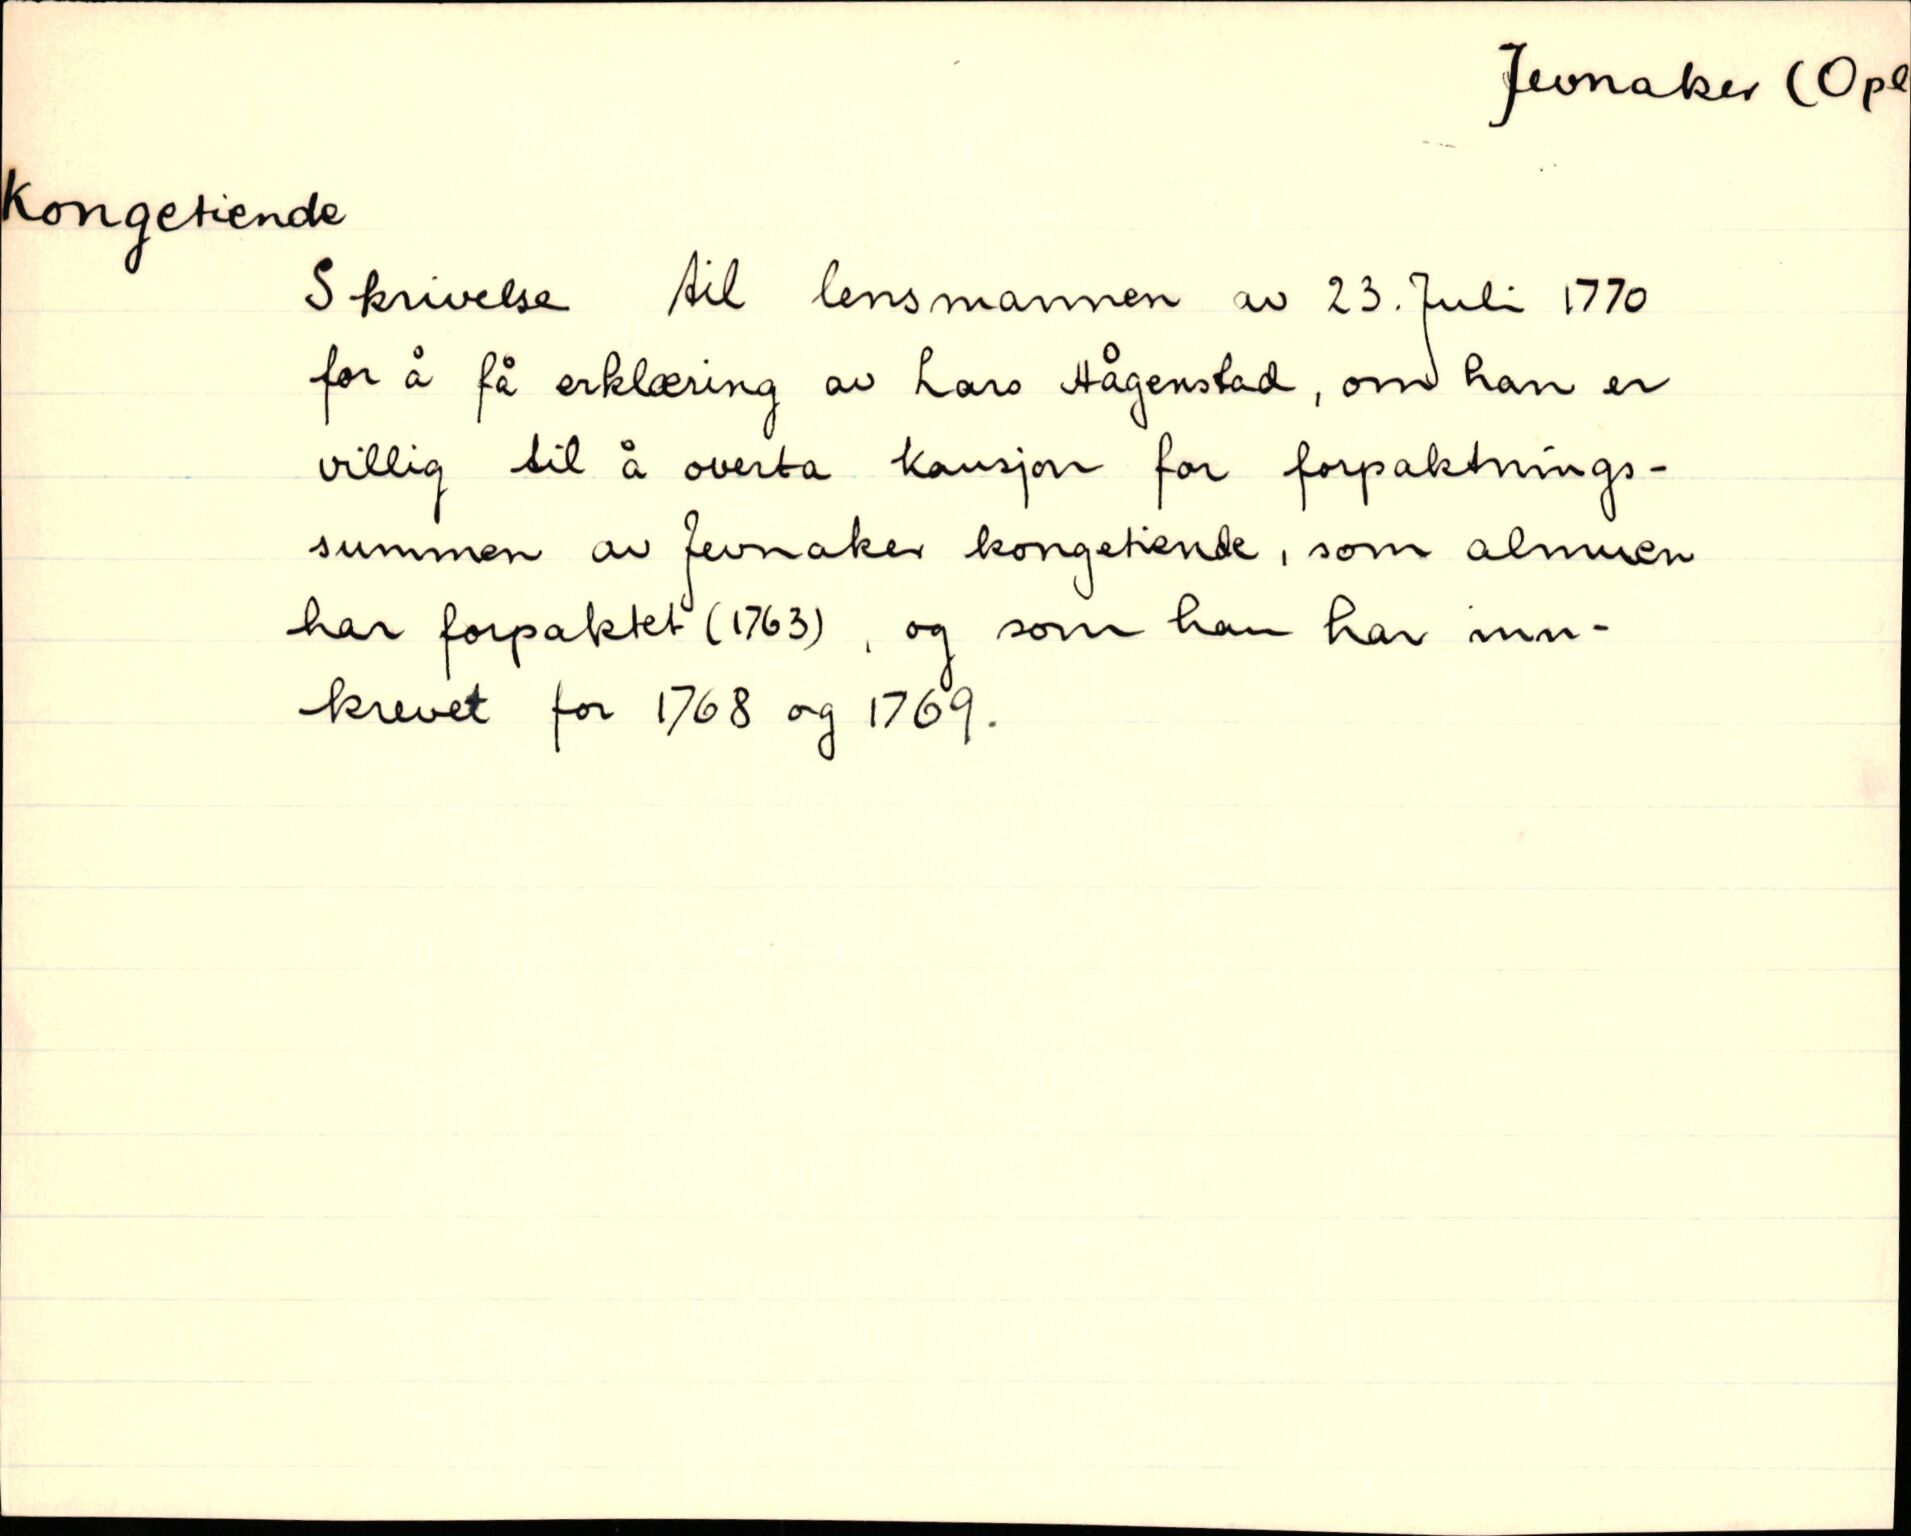 Jevnaker (Opl
Kongetiende
Skrivelse til lensmannen av 23. Juli 1770
for å få erklæring av Lars Hågenstad, om han er
villig til å overta kausjon for forpaktnings-
summen av Jevnaker kongetiende, som almuen
har forpaktet (1763), og som han har inn-
krevet for 1768 og 1769.